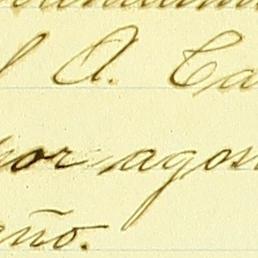 l A. Ca
por agos
eño.